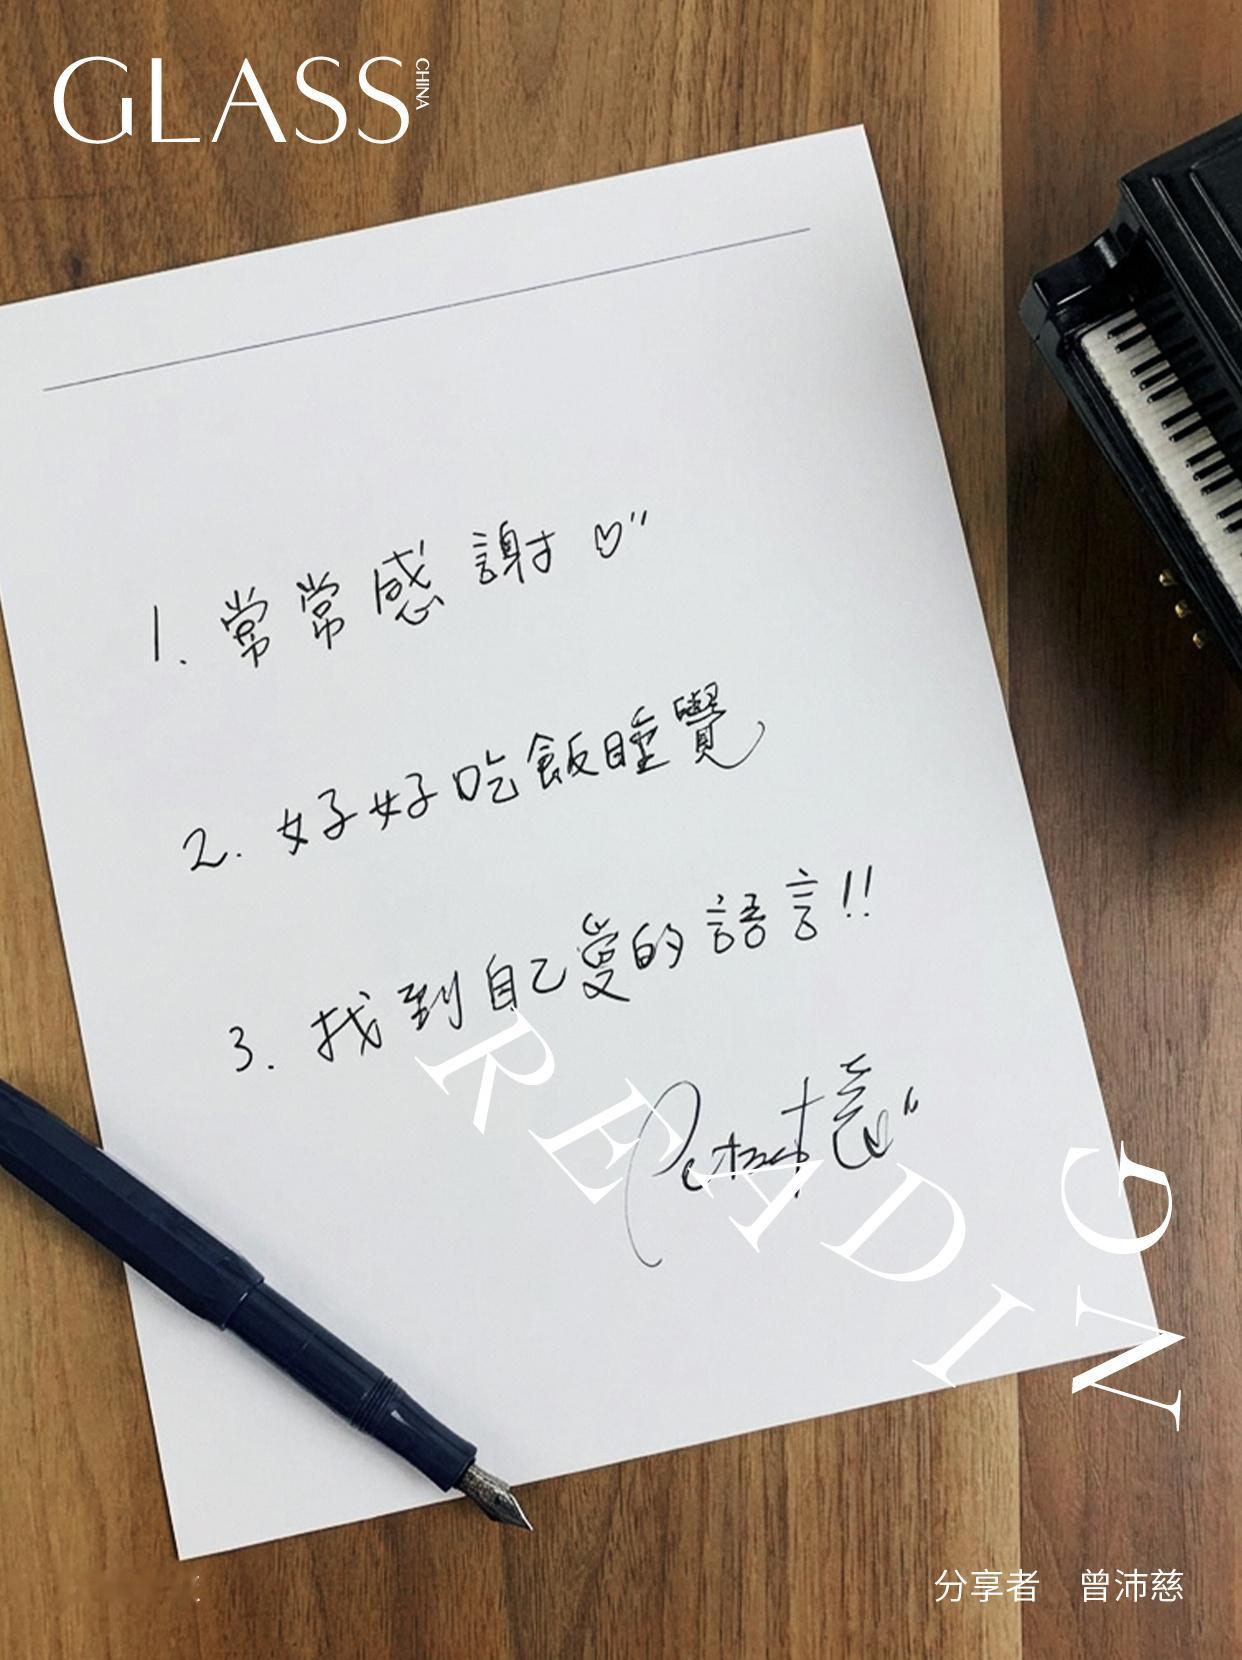 GLASS CHINA
1. 常常感謝♡"
2. 好好吃飯睡覺
3. 找到自己愛的語言!!
READING
分享者 曾沛慈